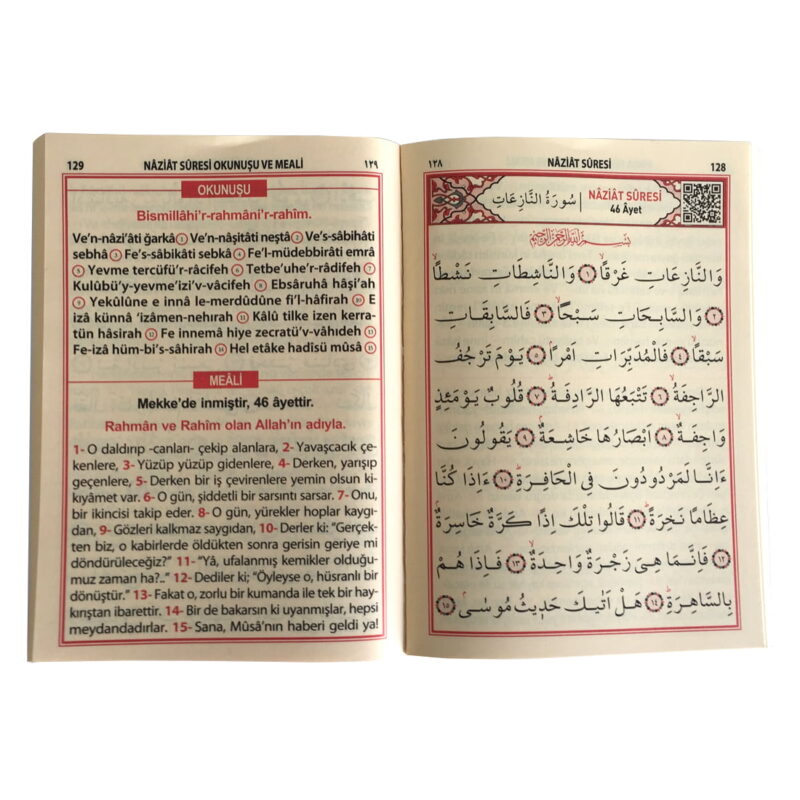 ١٢٨ NÂZİÂT SÛRESİ 128
سُورَةُ النَّازِعَاتِ | NÂZİÂT SÛRESİ
46 Âyet
بِسْمِ اللّٰهِ الرَّحْمٰنِ الرَّحِيمِ
وَالنَّازِعَاتِ غَرْقًاۙ ﴿١﴾ وَالنَّاشِطَاتِ نَشْطًاۙ
﴿٢﴾ وَالسَّابِحَاتِ سَبْحًاۙ ﴿٣﴾ فَالسَّابِقَاتِ
سَبْقًاۙ ﴿٤﴾ فَالْمُدَبِّرَاتِ اَمْرًاۢ ﴿٥﴾ يَوْمَ تَرْجُفُ
الرَّاجِفَةُۙ ﴿٦﴾ تَتْبَعُهَا الرَّادِفَةُۜ ﴿٧﴾ قُلُوبٌ يَوْمَئِذٍ
وَاجِفَةٌۙ ﴿٨﴾ اَبْصَارُهَا خَاشِعَةٌۢ ﴿٩﴾ يَقُولُونَ
ءَاِنَّا لَمَرْدُودُونَ فِي الْحَافِرَةِۜ ﴿١٠﴾ ءَاِذَا كُنَّا
عِظَامًا نَخِرَةًۜ ﴿١١﴾ قَالُوا تِلْكَ اِذًا كَرَّةٌ خَاسِرَةٌۢ
﴿١٢﴾ فَاِنَّمَا هِيَ زَجْرَةٌ وَاحِدَةٌۙ ﴿١٣﴾ فَاِذَا هُمْ
بِالسَّاهِرَةِۜ ﴿١٤﴾ هَلْ اَتٰيكَ حَدٖيثُ مُوسٰىۢ ﴿١٥﴾
129 NÂZİÂT SÛRESİ OKUNUŞU VE MEALİ ١٢٩
OKUNUŞU
Bismillâhi'r-rahmâni'r-rahîm.
Ve'n-nâzi'âti ğarkâ ① Ve'n-nâşitâti neştâ ② Ve's-sâbihâti
sebhâ ③ Fe's-sâbikâti sebkâ ④ Fe'l-müdebbirâti emrâ
⑤ Yevme tercüfü'r-râcifeh ⑥ Tetbe'uhe'r-râdifeh ⑦
Kulûbü'y-yevme'izi'v-vâcifeh ⑧ Ebsâruhâ hâşi'ah
⑨ Yekûlûne e innâ le-merdûdûne fi'l-hâfirah ⑩ E
izâ künnâ 'izâmen-nehırah ⑪ Kâlû tilke izen kerra-
tün hâsirah ⑫ Fe innemâ hiye zecratü'v-vâhıdeh ⑬
Fe-izâ hüm-bi's-sâhirah ⑭ Hel etâke hadîsü mûsâ ⑮
MEÂLİ
Mekke'de inmiştir, 46 âyettir.
Rahmân ve Rahîm olan Allah'ın adıyla.
1- O daldırıp -canları- çekip alanlara, 2- Yavaşcacık çe-
kenlere, 3- Yüzüp yüzüp gidenlere, 4- Derken, yarışıp
geçenlere, 5- Derken bir iş çevirenlere yemin olsun ki-
kıyâmet var. 6- O gün, şiddetli bir sarsıntı sarsar. 7- Onu,
bir ikincisi takip eder. 8- O gün, yürekler hoplar kaygı-
dan, 9- Gözleri kalkmaz saygıdan, 10- Derler ki: "Gerçek-
ten biz, o kabirlerde öldükten sonra gerisin geriye mi
döndürüleceğiz?" 11- "Yâ, ufalanmış kemikler olduğu-
muz zaman ha?.." 12- Dediler ki; "Öyleyse o, hüsranlı bir
dönüştür." 13- Fakat o, zorlu bir kumanda ile tek bir hay-
kırıştan ibarettir. 14- Bir de bakarsın ki uyanmışlar, hepsi
meydandadırlar. 15- Sana, Mûsâ'nın haberi geldi ya!